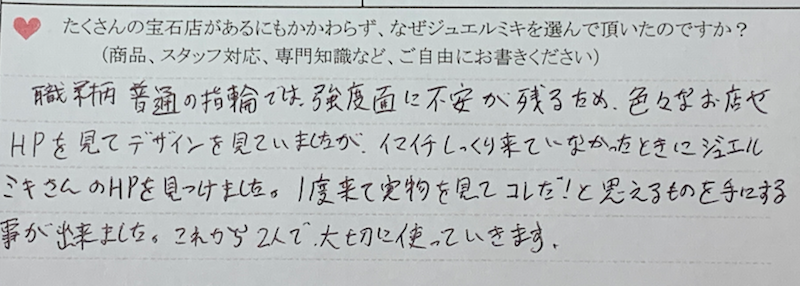 たくさんの宝石店があるにもかかわらず、なぜジュエルミキを選んで頂いたのですか？
（商品、スタッフ対応、専門知識など、ご自由にお書きください）
職業柄 普通の指輪では、強度面に不安が残るため、色々なお店や
HPを見てデザインを見ていましたが、イマイチしっくり来ていなかったときにジュエル
ミキさんのHPを見つけました。1度来て実物を見てコレだ！と思えるものを手にする
事が出来ました。これから2人で、大切に使っていきます。